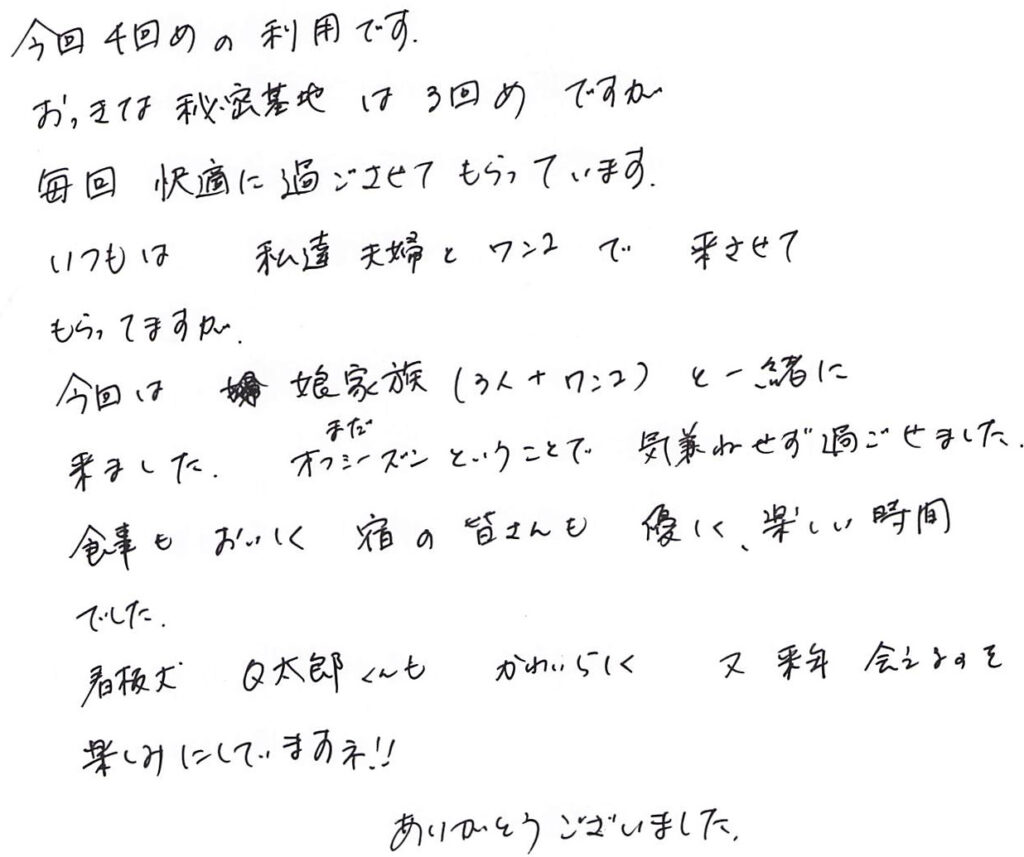 今回4回めの利用です.
おっきな秘密基地は3回めですが
毎回 快適に過ごさせてもらっています.
いつもは 私達夫婦とワン2で 来させて
もらってますが.
今回は 娘家族(3人+ワン2)と一緒に
まだ
来ました. オフシーズンということで 気兼ねせず過ごせました.
食事も おいしく 宿の皆さんも 優しく、楽しい時間
でした.
看板犬 Q太郎くんも かわいらしく 又来年 会えるのを
楽しみにしていますネ!!
ありがとうございました.